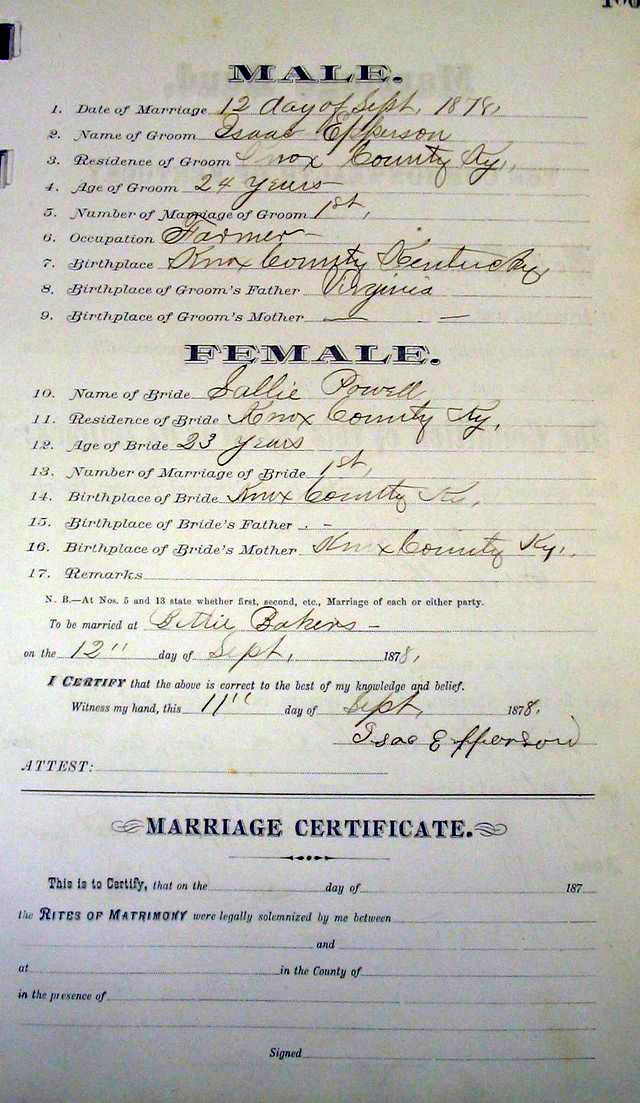 MALE.
1. Date of Marriage 12 day of Sept, 1878,
2. Name of Groom Isaac Epperson
3. Residence of Groom Knox County Ky.,
4. Age of Groom 24 years
5. Number of Marriage of Groom 1st,
6. Occupation Farmer –
7. Birthplace Knox County Kentucky
8. Birthplace of Groom's Father Virginia
9. Birthplace of Groom's Mother — —
FEMALE.
10. Name of Bride Sallie Powell
11. Residence of Bride Knox County Ky,
12. Age of Bride 23 years
13. Number of Marriage of Bride 1st,
14. Birthplace of Bride Knox County Ky.
15. Birthplace of Bride's Father . -
16. Birthplace of Bride's Mother Knox County Ky.
17. Remarks
N. B.—At Nos. 5 and 13 state whether first, second, etc., Marriage of each or either party.
To be married at Bakers –
on the 12" day of Sept, 1878,
I CERTIFY that the above is correct to the best of my knowledge and belief.
Witness my hand, this 11" day of Sept, 1878.
Isac Epperson
ATTEST:
MARRIAGE CERTIFICATE.
This is to Certify, that on the day of 187
the RITES OF MATRIMONY were legally solemnized by me between
and
at in the County of
in the presence of
Signed